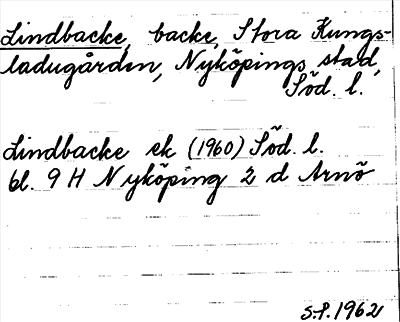 Lindbacke, backe, Stora Kungs-
ladugården, Nyköpings stad,
Söd. l.
Lindbacke ek (1960) Söd. l.
bl. 9 H Nyköping 2 d Arnö
S.P. 1962